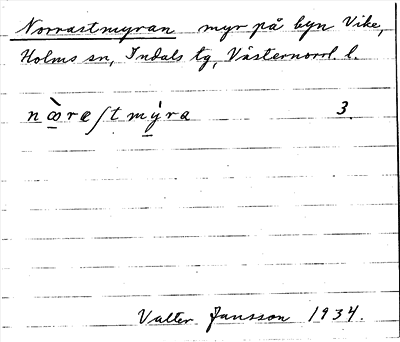 Norrastmyran myr på byn Vike,
Holms sn, Indals tg, Västernorrl. l.
nœ̀reſtmýra 3.
Valter Jansson 1934.